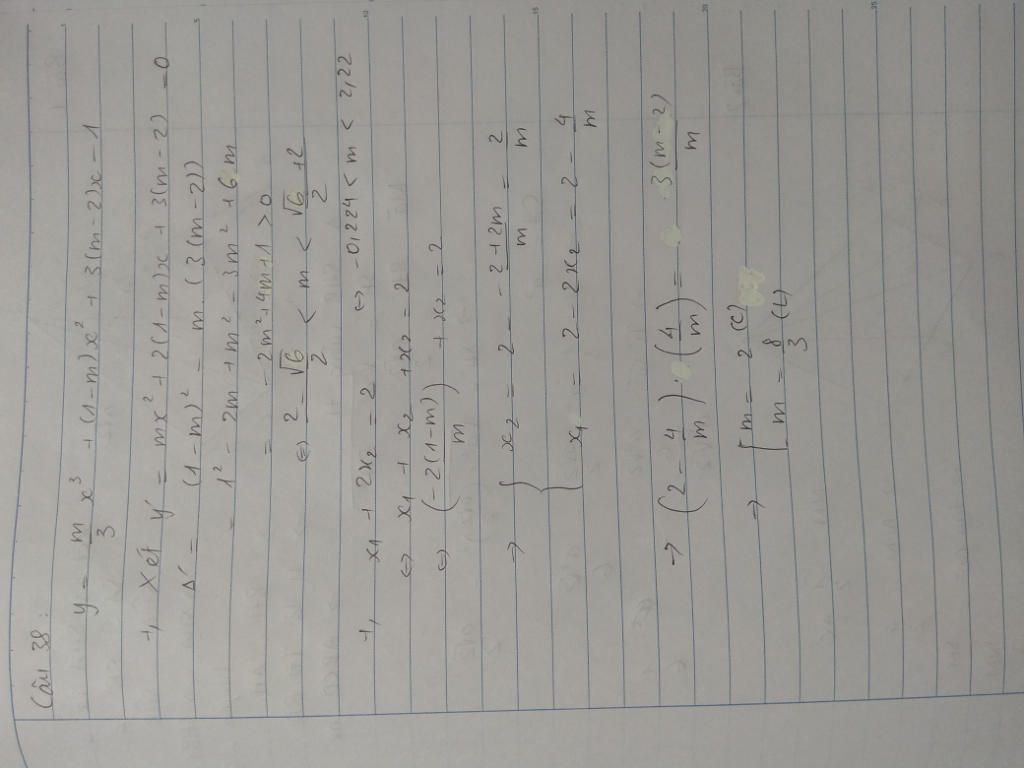 Câu 38:
y = m/3 x³ + (1-m)x² + 3(m-2)x - 1
+, Xét y' = mx² + 2(1-m)x + 3(m-2) = 0
Δ' = (1-m)² - m.(3(m-2))
= 1² - 2m + m² - 3m² + 6m
= -2m² + 4m + 1 > 0
⇔ (2-√6)/2 < m < (√6+2)/2
+, x₁ + 2x₂ = 2 ⇔ -0,224 < m < 2,22
⇔ x₁ + x₂ + x₂ = 2
⇔ (-2(1-m)/m) + x₂ = 2
⇒ { x₂ = 2 - (-2+2m)/m = 2/m
x₁ = 2 - 2x₂ = 2 - 4/m
→ (2 - 4/m).(4/m) = 3(m-2)/m
⇒ [ m = 2 (C)
m = 8/3 (L)